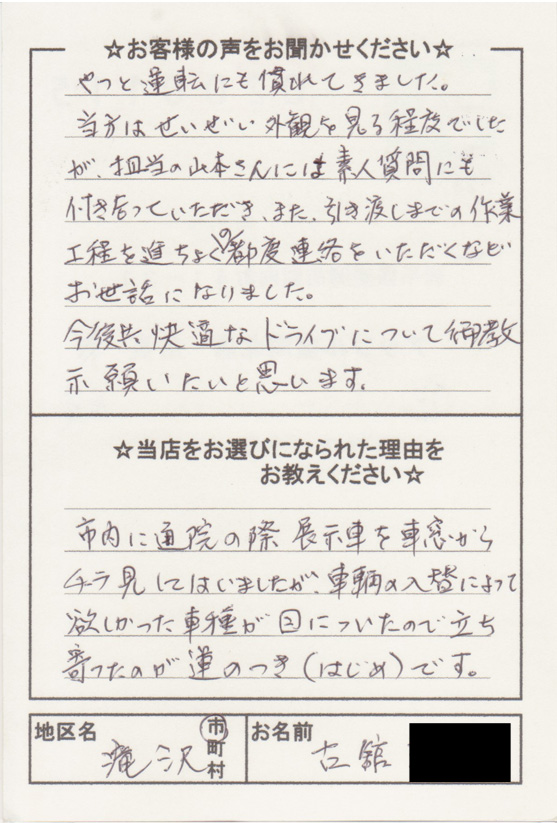 ☆お客様の声をお聞かせください☆
やっと運転にも慣れてきました。
当方はせいぜい外観を見る程度でした
が、担当の山本さんには素人質問にも
付き合っていただき、また、引き渡しまでの作業
工程を進ちょくの都度連絡をいただくなど
お世話になりました。
今後共快適なドライブについて御教
示願いたいと思います。
☆当店をお選びになられた理由を
お教えください☆
市内に通院の際展示車を車窓から
チラ見してはいましたが、車輌の入替によって
欲しかった車種が目についたので立ち
寄ったのが運のつき(はじめ)です。
地区名 滝沢 市町村 お名前 古舘